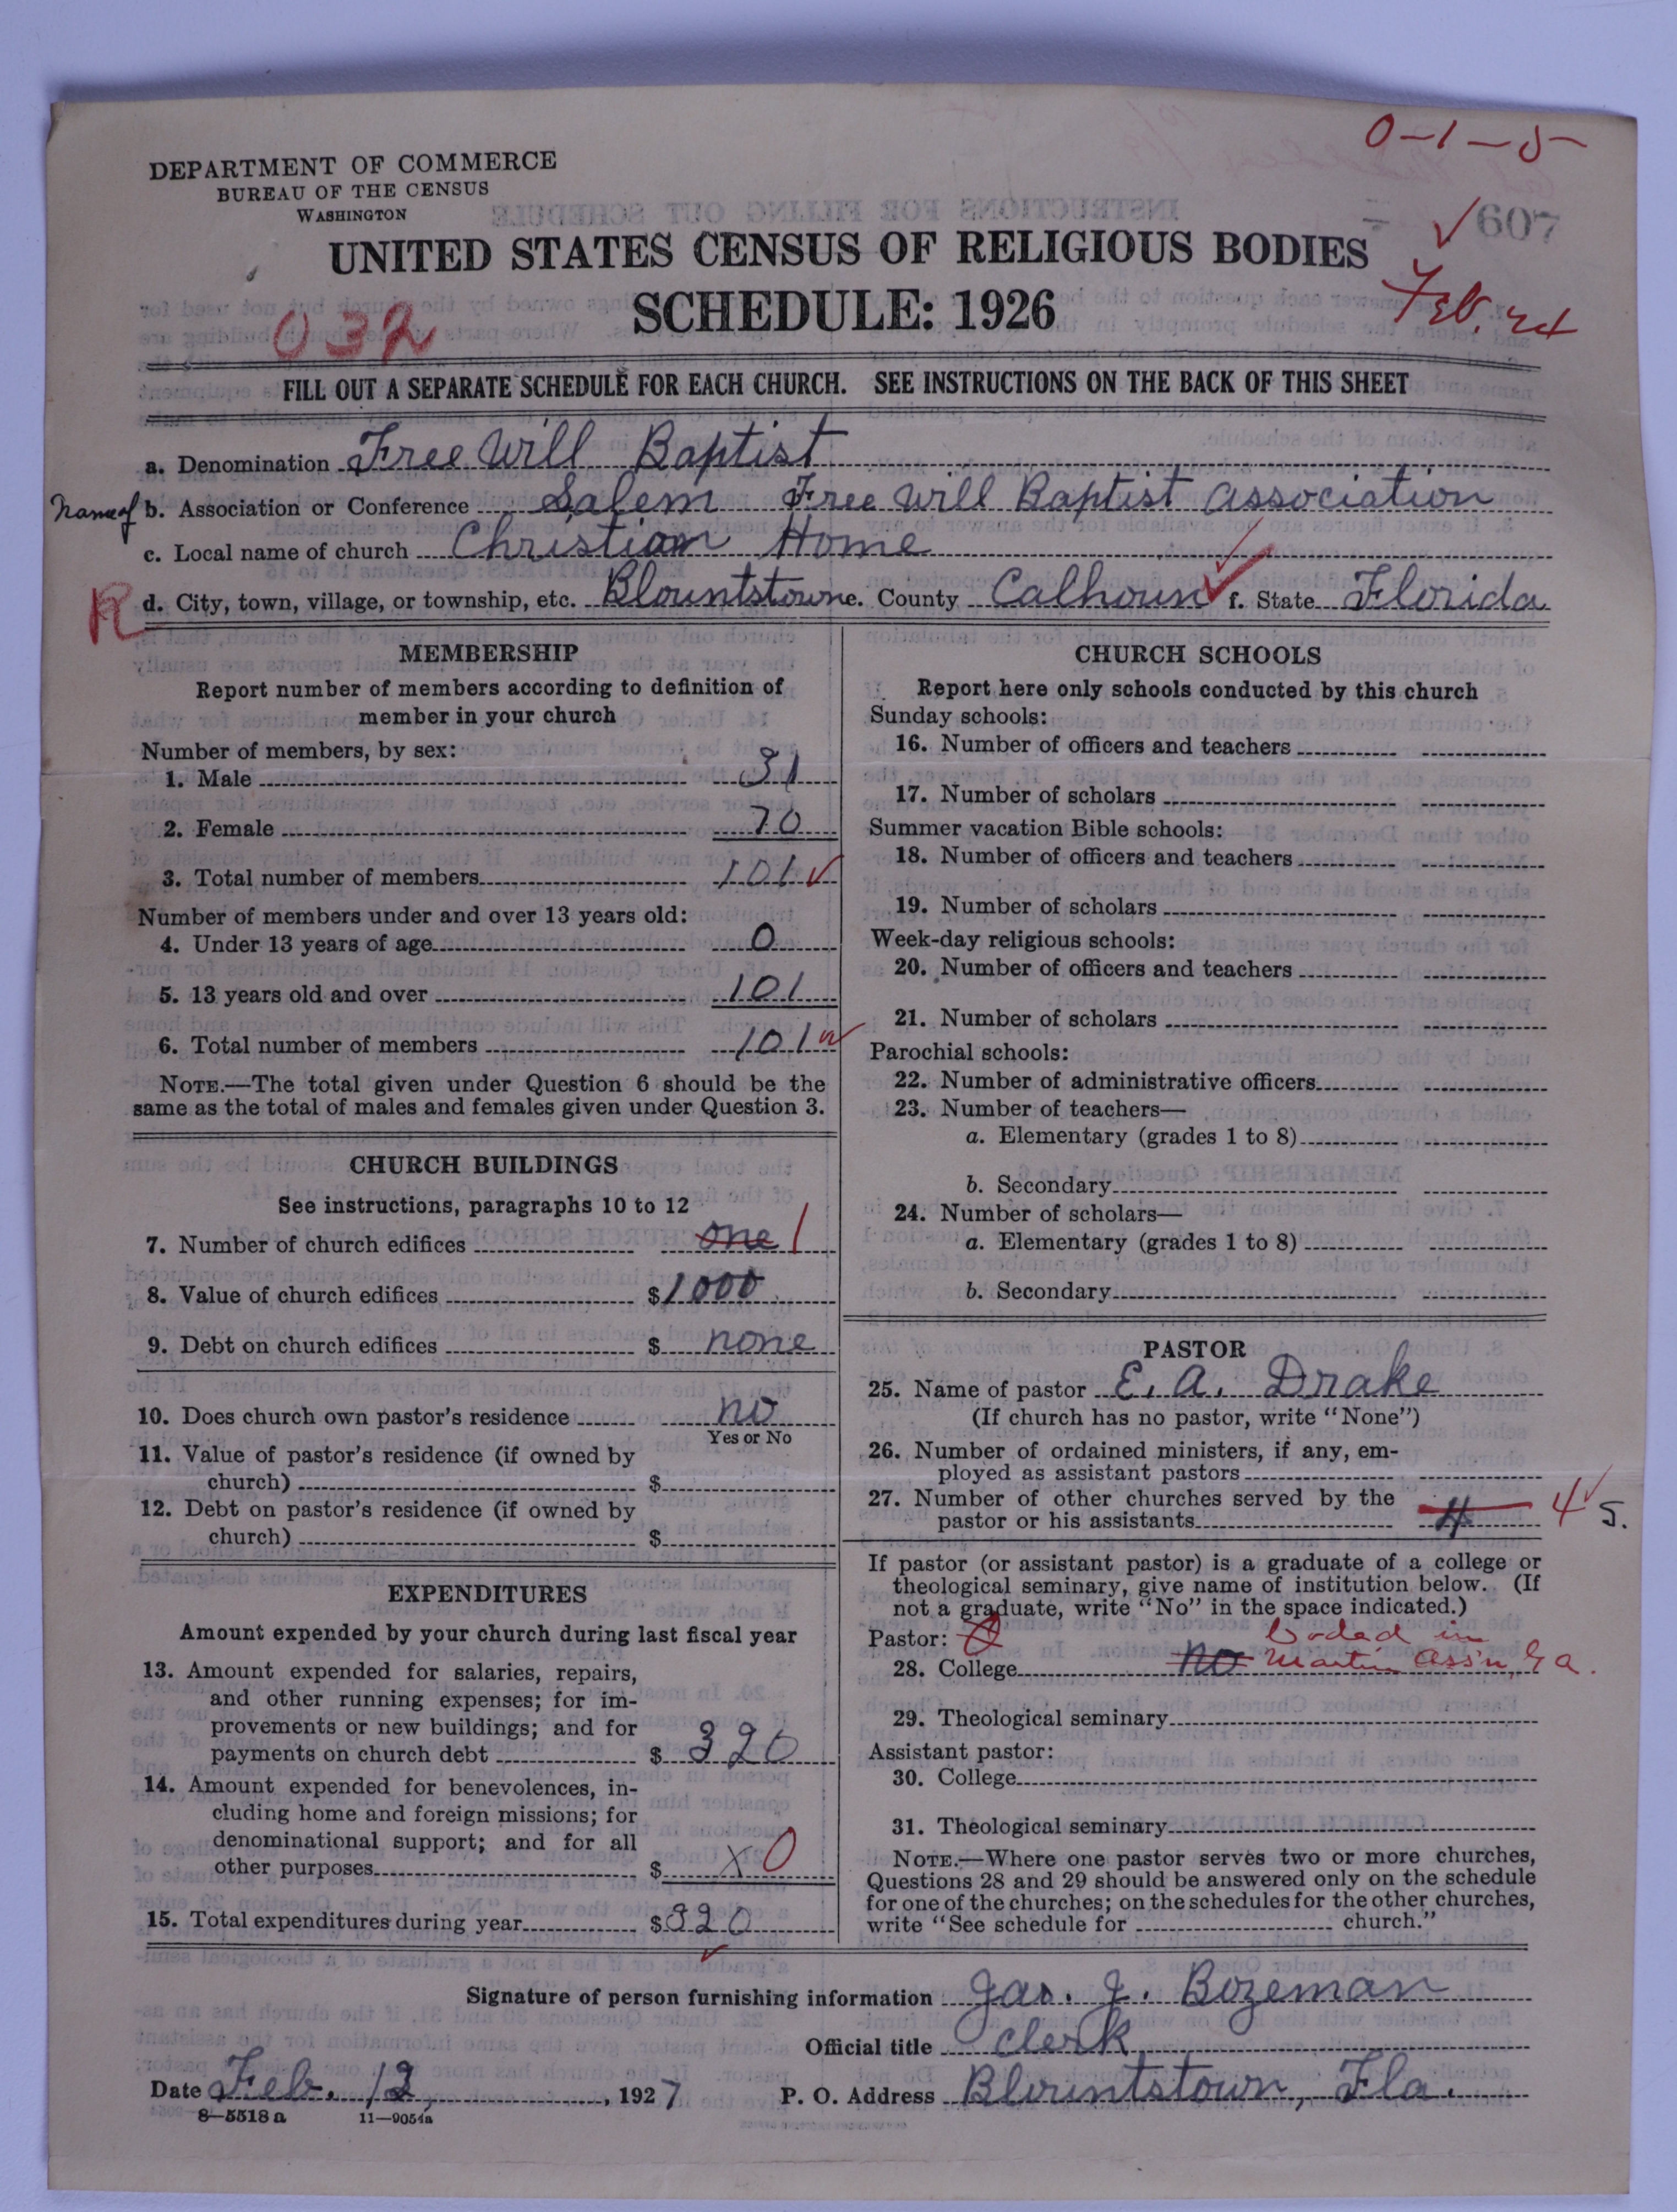 0-1-5
DEPARTMENT OF COMMERCE
BUREAU OF THE CENSUS
WASHINGTON
607
UNITED STATES CENSUS OF RELIGIOUS BODIES
SCHEDULE: 1926
Feb. 24
032
FILL OUT A SEPARATE SCHEDULE FOR EACH CHURCH. SEE INSTRUCTIONS ON THE BACK OF THIS SHEET
a. Denomination Free Will Baptist
Name of b. Association or Conference Salem Free Will Baptist Association
c. Local name of church Christian Home
R d. City, town, village, or township, etc. Blountstown e. County Calhoun f. State Florida
MEMBERSHIP
Report number of members according to definition of
member in your church
Number of members, by sex:
1. Male 31
2. Female 70
3. Total number of members 101
Number of members under and over 13 years old:
4. Under 13 years of age 0
5. 13 years old and over 101
6. Total number of members 101
NOTE.—The total given under Question 6 should be the
same as the total of males and females given under Question 3.
CHURCH BUILDINGS
See instructions, paragraphs 10 to 12
7. Number of church edifices one 1
8. Value of church edifices $1000
9. Debt on church edifices $ none
10. Does church own pastor's residence no
Yes or No
11. Value of pastor's residence (if owned by
church) $
12. Debt on pastor's residence (if owned by
church) $
EXPENDITURES
Amount expended by your church during last fiscal year
13. Amount expended for salaries, repairs,
and other running expenses; for im-
provements or new buildings; and for
payments on church debt $ 320
14. Amount expended for benevolences, in-
cluding home and foreign missions; for
denominational support; and for all
other purposes $ X 0
15. Total expenditures during year $320
CHURCH SCHOOLS
Report here only schools conducted by this church
Sunday schools:
16. Number of officers and teachers
17. Number of scholars
Summer vacation Bible schools:
18. Number of officers and teachers
19. Number of scholars
Week-day religious schools:
20. Number of officers and teachers
21. Number of scholars
Parochial schools:
22. Number of administrative officers
23. Number of teachers—
a. Elementary (grades 1 to 8)
b. Secondary
24. Number of scholars—
a. Elementary (grades 1 to 8)
b. Secondary
PASTOR
25. Name of pastor E. A. Drake
(If church has no pastor, write "None")
26. Number of ordained ministers, if any, em-
ployed as assistant pastors
27. Number of other churches served by the
pastor or his assistants 4 4 5.
If pastor (or assistant pastor) is a graduate of a college or
theological seminary, give name of institution below. (If
not a graduate, write "No" in the space indicated.)
Pastor: Coded in
28. College no Martin Ass'n, Ga.
29. Theological seminary
Assistant pastor:
30. College
31. Theological seminary
NOTE.—Where one pastor serves two or more churches,
Questions 28 and 29 should be answered only on the schedule
for one of the churches; on the schedules for the other churches,
write "See schedule for church."
Signature of person furnishing information Jas. J. Bozeman
Official title Clerk
Date Feb. 12, 1927 P. O. Address Blountstown, Fla.
8—5518 a 11—9054a